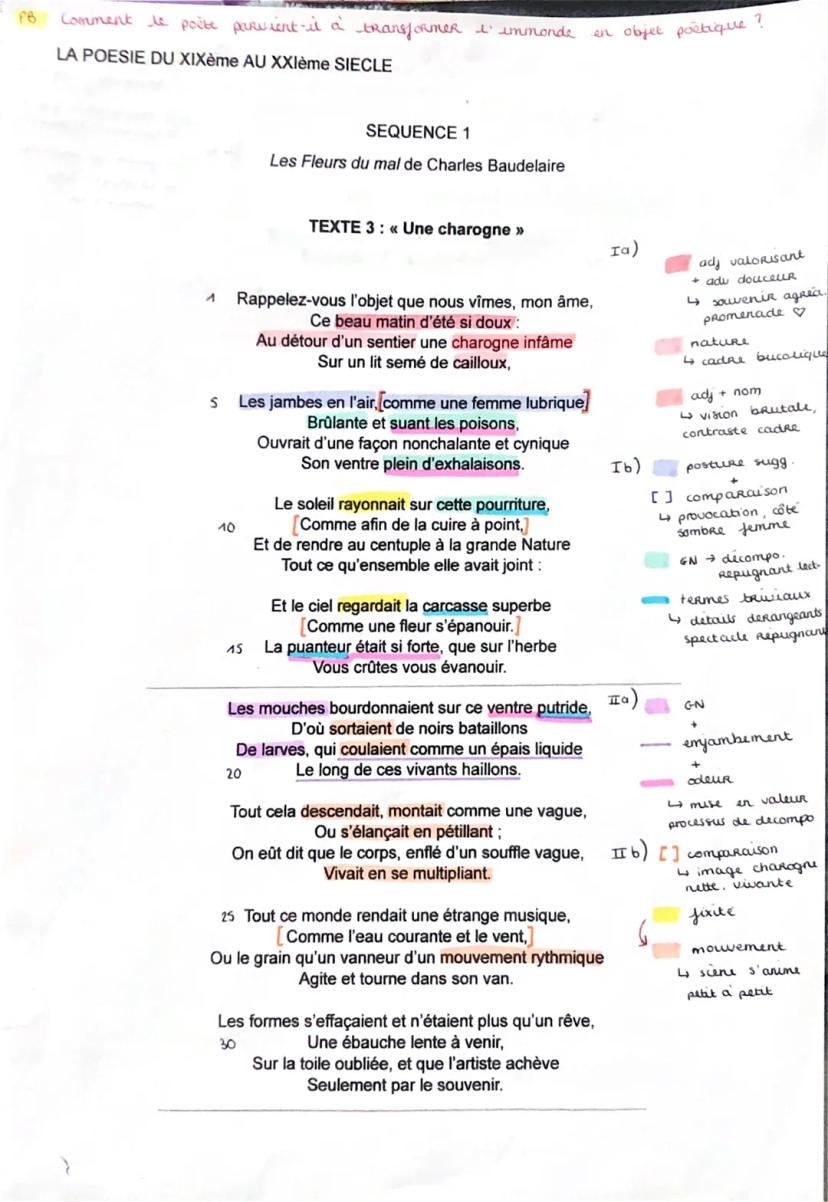 PB Comment le poète parvient-il à transformer l'immonde en objet poétique ?
LA POESIE DU XIXème AU XXIème SIECLE
SEQUENCE 1
Les Fleurs du mal de Charles Baudelaire
TEXTE 3 : « Une charogne »
1 Rappelez-vous l'objet que nous vîmes, mon âme,
Ce beau matin d'été si doux :
Au détour d'un sentier une charogne infâme
Sur un lit semé de cailloux,
5 Les jambes en l'air,[comme une femme lubrique]
Brûlante et suant les poisons,
Ouvrait d'une façon nonchalante et cynique
Son ventre plein d'exhalaisons.
Le soleil rayonnait sur cette pourriture,
10 [Comme afin de la cuire à point,]
Et de rendre au centuple à la grande Nature
Tout ce qu'ensemble elle avait joint :
Et le ciel regardait la carcasse superbe
[Comme une fleur s'épanouir.]
15 La puanteur était si forte, que sur l'herbe
Vous crûtes vous évanouir.
Les mouches bourdonnaient sur ce ventre putride,
D'où sortaient de noirs bataillons
De larves, qui coulaient comme un épais liquide
20 Le long de ces vivants haillons.
Tout cela descendait, montait comme une vague,
Ou s'élançait en pétillant ;
On eût dit que le corps, enflé d'un souffle vague,
Vivait en se multipliant.
25 Tout ce monde rendait une étrange musique,
[Comme l'eau courante et le vent,]
Ou le grain qu'un vanneur d'un mouvement rythmique
Agite et tourne dans son van.
Les formes s'effaçaient et n'étaient plus qu'un rêve,
30 Une ébauche lente à venir,
Sur la toile oubliée, et que l'artiste achève
Seulement par le souvenir.
Ia)
adj valorisant
+ adv douceur
↳ souvenir agréa.
promenade ♡
nature
↳ cadre bucolique
adj + nom
↳ vision brutale,
contraste cadre
Ib) posture sugg.
+
[ ] comparaison
↳ provocation, côté
sombre femme
GN → décompo.
répugnant lect.
termes triviaux
↳ détails dérangeants
spectacle répugnant
IIa) GN
+
enjambement
+
odeur
↳ mise en valeur
processus de décompo
IIb) [ ] comparaison
↳ image charogne
nette, vivante
fixité
mouvement
↳ scène s'anime
petit à petit